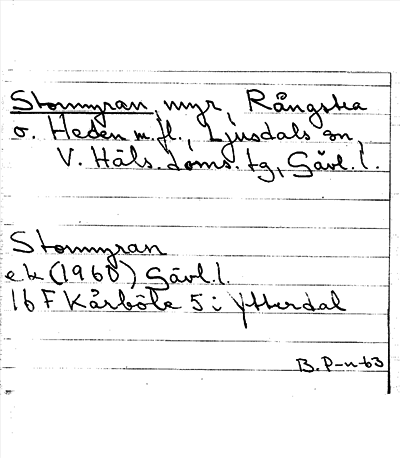 Stormyran, myr, Rångstra
o. Heden m.fl., Ljusdals sn,
V. Häls. doms. tg, Gävl. l.
Stormyran
ek (1960) Gävl. l.
16 F Kårböle 5 i Ytterdal
B. P-n-63